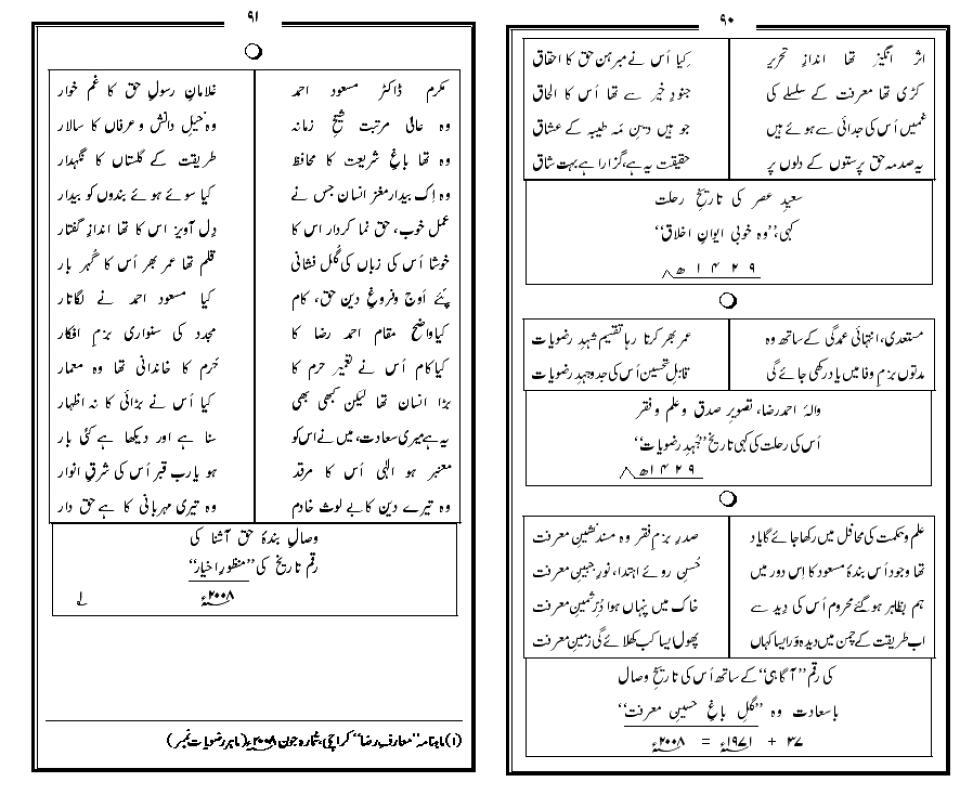 ۹۰
اثر انگیز تھا اندازِ تحریر کِیا اُس نے مبرہن حق کا احقاق
کڑی تھا معرفت کے سلسلے کی جنودِ خیر سے تھا اُس کا الحاق
غمیں اُس کی جدائی سے ہوئے ہیں جو ہیں دینِ مہِ طیبہ کے عشاق
یہ صدمہ حق پرستوں کے دلوں پر حقیقت یہ ہے، گزارا ہے بہت شاق
سعیدِ عصر کی تاریخِ رحلت
کہی، ’’وہ خوبیِ ایوانِ اخلاق‘‘
۱۴۲۹ھ
مستعدی، انتہائی عمدگی کے ساتھ وہ عمر بھر کرتا رہا تقسیم شہدِ رضویات
مدتوں بزمِ وفا میں یاد رکھی جائے گی قابلِ تحسین اُس کی جدوجہدِ رضویات
والۂ احمد رضا، تصویرِ صدق و علم و فقر
اُس کی رحلت کی کہی تاریخ ’’جُہدِ رضویات‘‘
۱۴۲۹ھ
علم و حکمت کی محافل میں رکھا جائے گا یاد صدرِ بزمِ فقر وہ مسند نشینِ معرفت
تھا وجود اُس بندۂ مسعود کا اِس دور میں حُسنِ روئے ابتدا، نورِ جبیںِ معرفت
ہم بظاہر ہو گئے محروم اُس کی دِید سے خاک میں پنہاں ہوا دُرِّ ثمینِ معرفت
اب طریقت کے چمن میں دیدہ ور ایسا کہاں پھول ایسا کب کھلائے گی زمینِ معرفت
کی رقم ’’آگاہی‘‘ کے ساتھ اُس کی تاریخِ وصال
با سعادت وہ ’’گلِ باغِ حسینِ معرفت‘‘
۳۷ + ۱۹۷۱ء = ۲۰۰۸ء
۹۱
مکرم ڈاکٹر مسعود احمد غلامانِ رسولِ حق کا غم خوار
وہ عالی مرتبت شیخِ زمانہ وہ خیلِ دانش و عرفاں کا سالار
وہ تھا باغِ شریعت کا محافظ طریقت کے گلستاں کا نگہدار
وہ اِک بیدار مغز انسان جس نے کیا سوئے ہوئے بندوں کو بیدار
عمل خوب، حق نما کردار اس کا دِل آویز اس کا تھا اندازِ گفتار
خوشا اُس کی زباں کی گُل فشانی قلم تھا عمر بھر اُس کا گُہر بار
پئے اَوج و فروغِ دینِ حق، کام کیا مسعود احمد نے لگاتار
کیا واضح مقام احمد رضا کا مجدد کی سنواری بزمِ افکار
کیا کام اُس نے تعمیرِ حرم کا حَرم کا خاندانی تھا وہ معمار
بڑا انسان تھا لیکن کبھی بھی کیا اُس نے بڑائی کا نہ اظہار
یہ ہے میری سعادت، میں نے اس کو سنا ہے اور دیکھا ہے کئی بار
معنبر ہو الٰہی اُس کا مرقد ہو یارب قبر اُس کی شرقِ انوار
وہ تیرے دین کا بے لوث خادم وہ تیری مہربانی کا ہے حق دار
وصالِ بندۂ حق آشنا کی
رقم تاریخ کی ’’منظورِ اخیار‘‘
۲۰۰۸ء ۱
(۱) ماہنامہ ’’معارفِ رضا‘‘ کراچی، شمارہ جون ۲۰۰۸ء (ماہرِ رضویات نمبر)